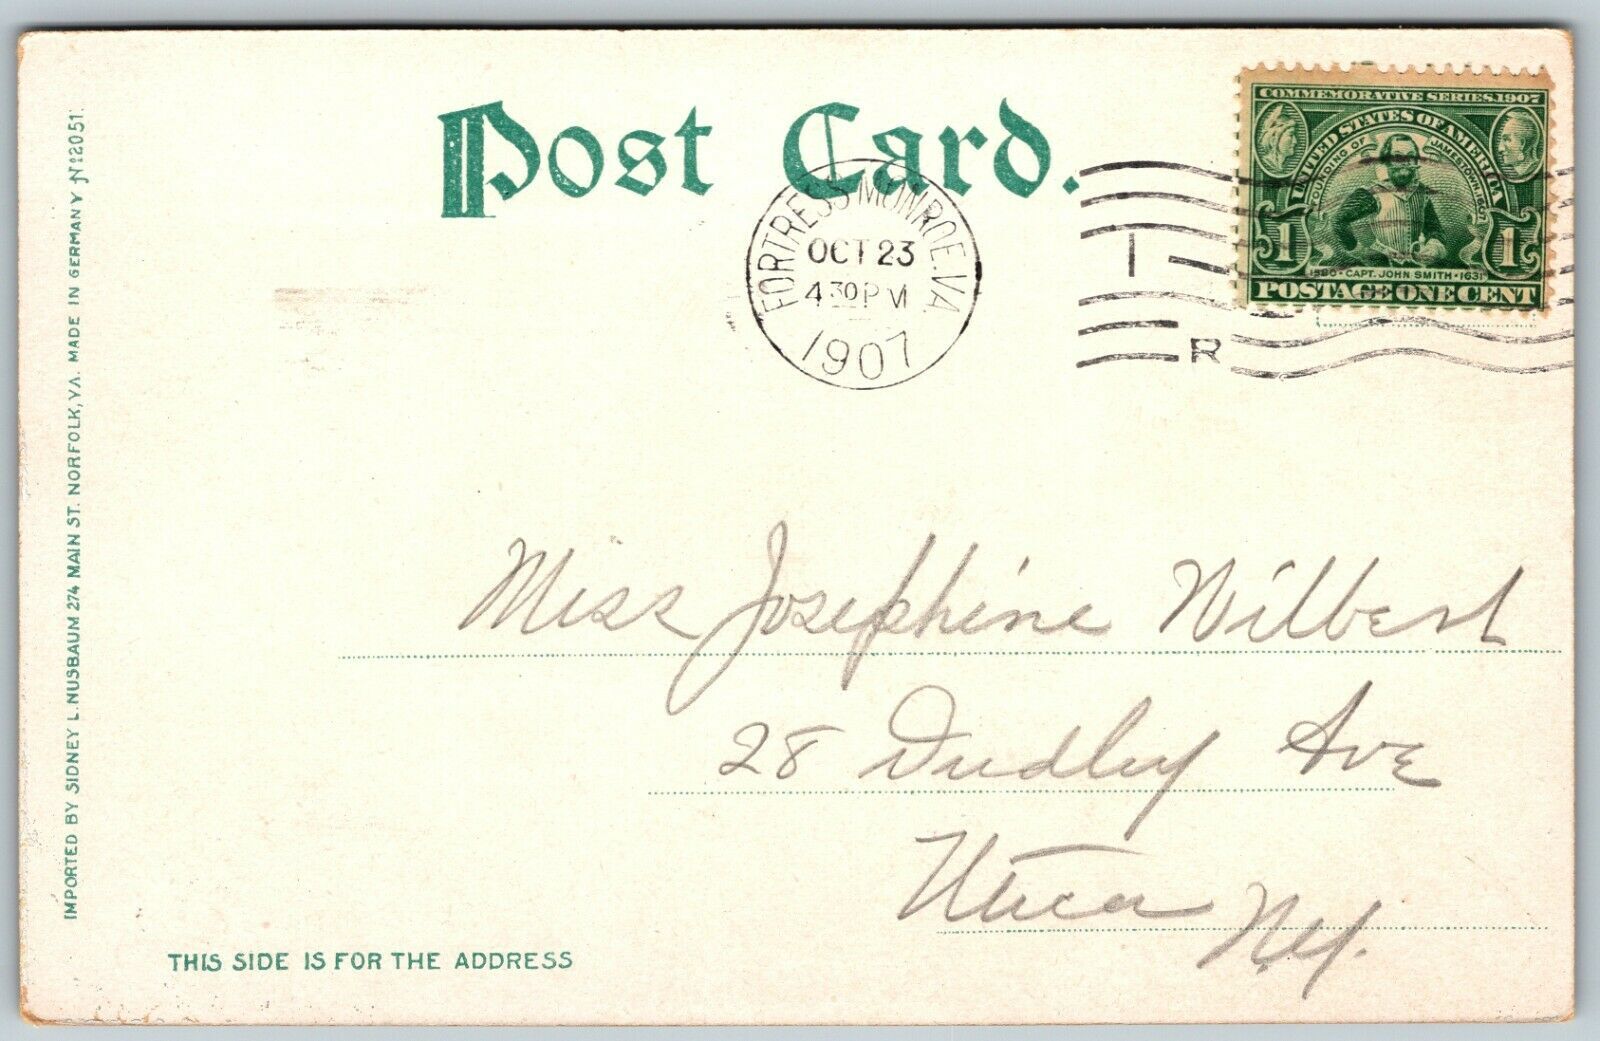 Post Card.
FORTRESS MONROE. VA.
OCT 23
4 30 P M
1907
I
R
COMMEMORATIVE SERIES. 1907
UNITED STATES OF AMERICA
FOUNDING OF JAMESTOWN 1607
1 1
1580 · CAPT. JOHN SMITH · 1631
POSTAGE ONE CENT
Miss Josephine Wilbert
28 Dudley Ave
Utica N.Y.
THIS SIDE IS FOR THE ADDRESS
IMPORTED BY SIDNEY L. NUSBAUM 274 MAIN ST. NORFOLK, VA. MADE IN GERMANY No 12051